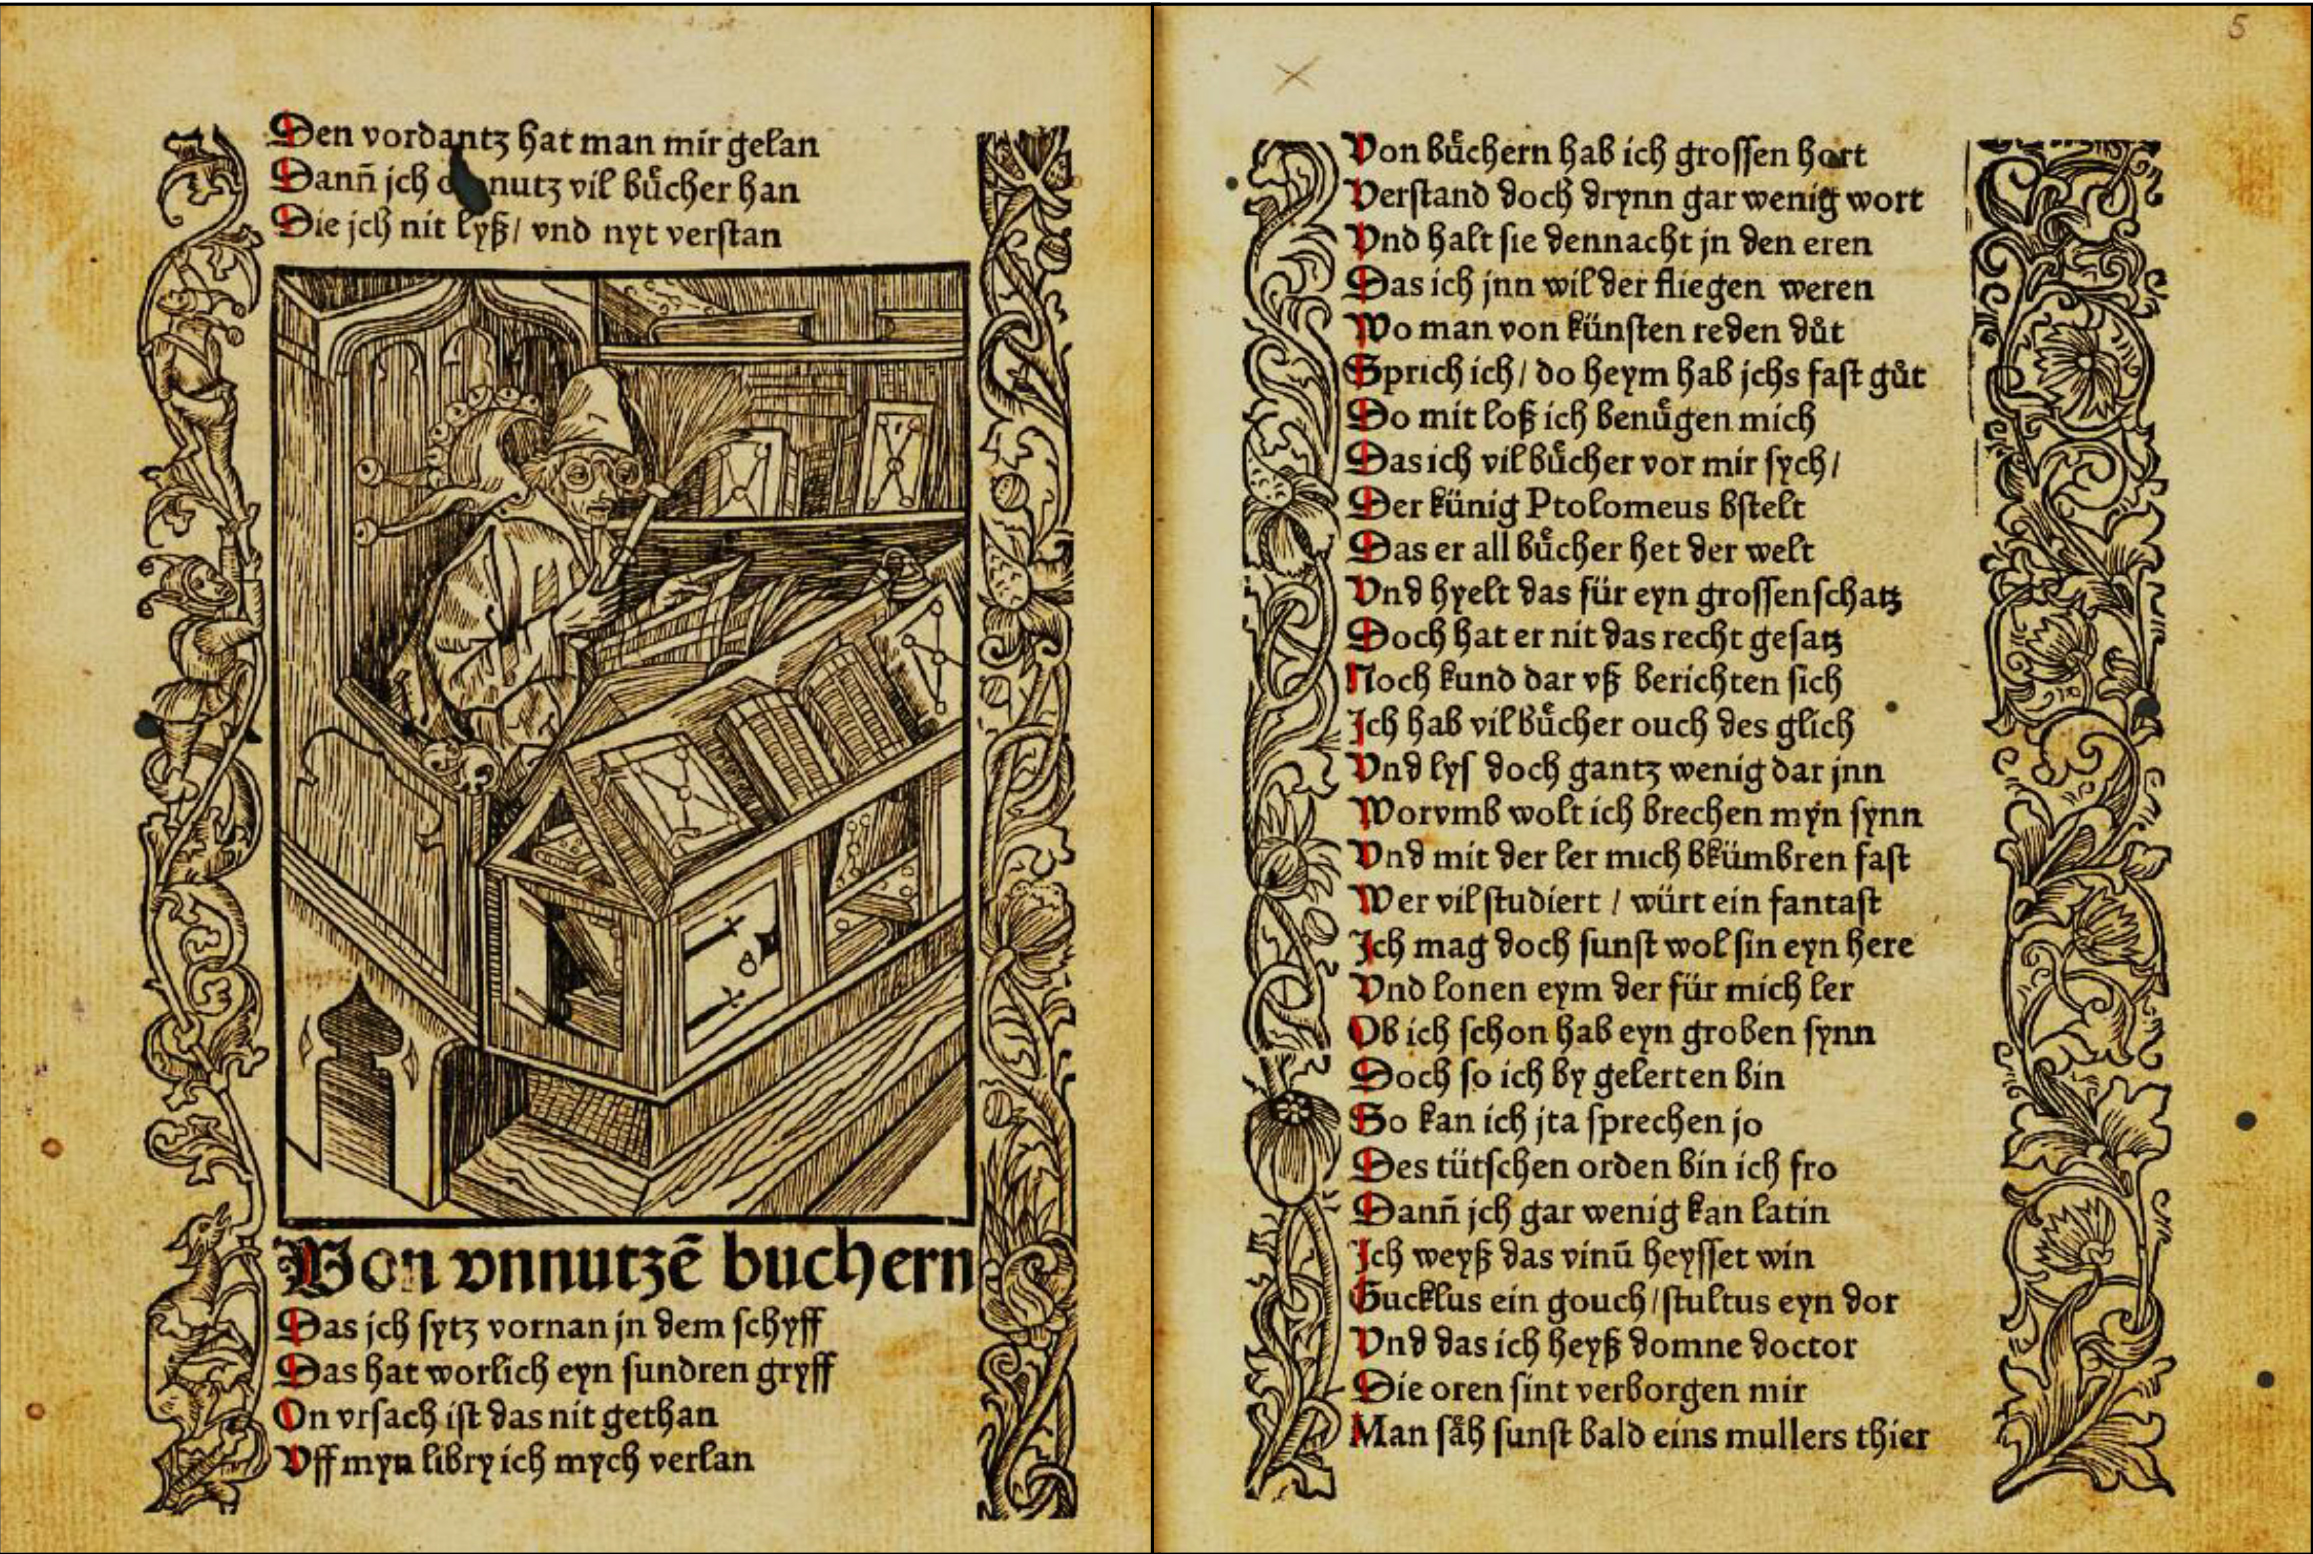 Den vordantz hat man mir gelan
Dann̄ jch nutz vil buͤcher han
Die jch nit lyß/ vnd nyt verstan
Von vnnutzē buchern
Das jch sytz vornan jn dem schyff
Das hat worlich eyn sundren gryff
On vrsach ist das nit gethan
Vff myn libry ich mych verlan
5
Von buͤchern hab ich grossen hort
Verstand doch drynn gar wenig wort
Vnd halt sie dennacht jn den eren
Das ich jnn wil der fliegen weren
Wo man von künsten reden duͤt
Sprich ich/ do heym hab jchs fast guͤt
Do mit loß ich benuͤgen mich
Das ich vil buͤcher vor mir sych/
Der künig Ptolomeus bstelt
Das er all buͤcher het der welt
Vnd hyelt das für eyn grossen schatz
Doch hat er nit das recht gesatz
Noch kund dar vß berichten sich
Ich hab vil buͤcher ouch des glich
Vnd lys doch gantz wenig dar jnn
Worvmb wolt ich brechen myn synn
Vnd mit der ler mich bkümbren fast
Wer vil studiert / würt ein fantast
Ich mag doch sunst wol sin eyn here
Vnd lonen eym der für mich ler
Ob ich schon hab eyn groben synn
Doch so ich by gelerten bin
So kan ich jta sprechen jo
Des tütschen orden bin ich fro
Dann̄ jch gar wenig kan latin
Ich weyß das vinū heysset win
Gucklus ein gouch/stultus eyn dor
Vnd das ich heyß domne doctor
Die oren sint verborgen mir
Man saͤh sunst bald eins mullers thier